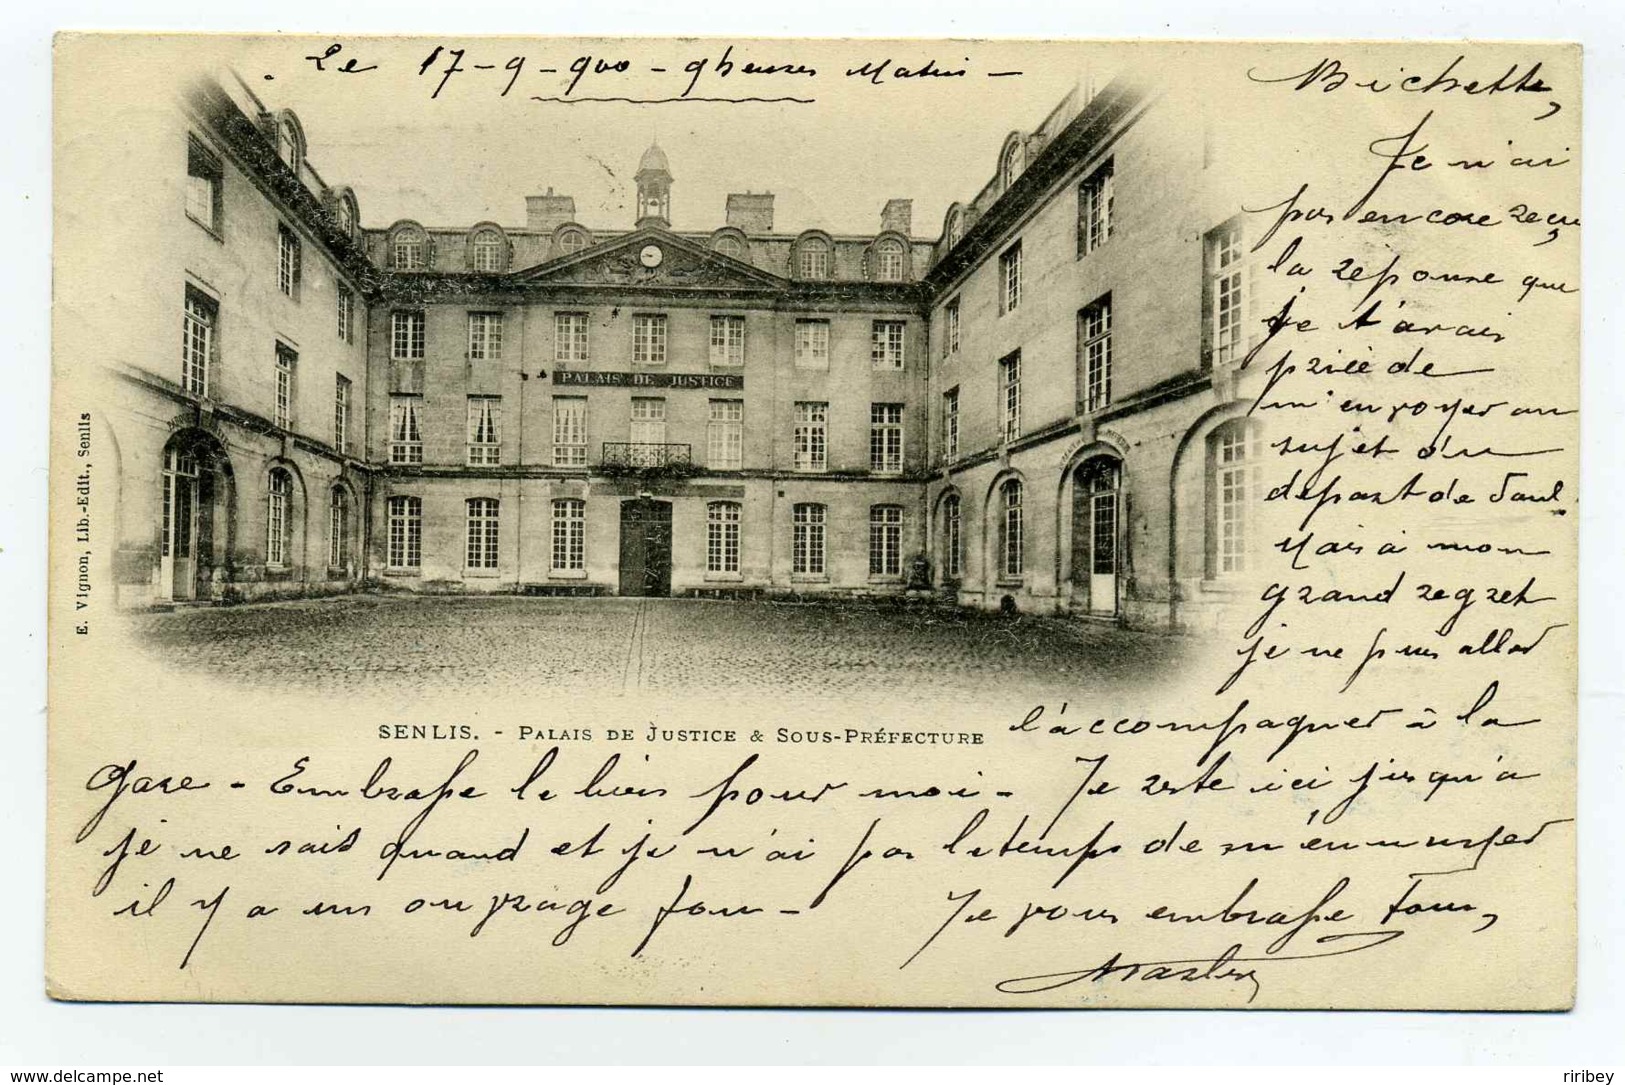 Le 17-9-900 - 9 heures Matin -
Bichette,
Je n'ai
pas encore reçu
la réponse que
je t'avais
priée de
m'envoyer au
sujet du
départ de Paul.
Mais à mon
grand regret
je ne puis aller
l'accompagner à la
gare - Embrasse le bien pour moi - Je reste ici jusqu'à
je ne sais quand et je n'ai pas le temps de m'ennuyer
il y a un ouvrage fou - Je vous embrasse Tous,
PALAIS DE JUSTICE
E. Vignon, Lib.-Edit., Senlis
SENLIS. - PALAIS DE JUSTICE & SOUS-PRÉFECTURE
ririбey